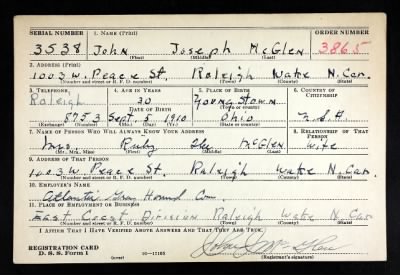 SERIAL NUMBER 1. NAME (Print) ORDER NUMBER
3538 John Joseph McGlen 3865
(First) (Middle) (Last)
2. ADDRESS (Print)
1003 W. Peace St. Raleigh Wake N. Car.
(Number and street or R. F. D. number) (Town) (County) (State)
3. TELEPHONE 4. AGE IN YEARS 5. PLACE OF BIRTH 6. COUNTRY OF CITIZENSHIP
Raleigh 30 Youngstown
DATE OF BIRTH (Town or county)
5753 Sept. 5 1910 Ohio U.S.A
(Exchange) (Number) (Mo.) (Day) (Yr.) (State or country)
7. NAME OF PERSON WHO WILL ALWAYS KNOW YOUR ADDRESS 8. RELATIONSHIP OF THAT PERSON
Mrs Ruby McGlen Wife
(Mr., Mrs., Miss) (First) (Middle) (Last)
9. ADDRESS OF THAT PERSON
1003 W. Peace St. Raleigh Wake N. Car.
(Number and street or R. F. D. number) (Town) (County) (State)
10. EMPLOYER'S NAME
Atlantic Grey Hound
11. PLACE OF EMPLOYMENT OR BUSINESS
East Coast Division Raleigh Wake N. Car
(Number and street or R. F. D. number) (Town) (County) (State)
I AFFIRM THAT I HAVE VERIFIED ABOVE ANSWERS AND THAT THEY ARE TRUE.
REGISTRATION CARD
D. S. S. Form 1 (over) 16—17105 (Registrant's signature)
John J McGlen